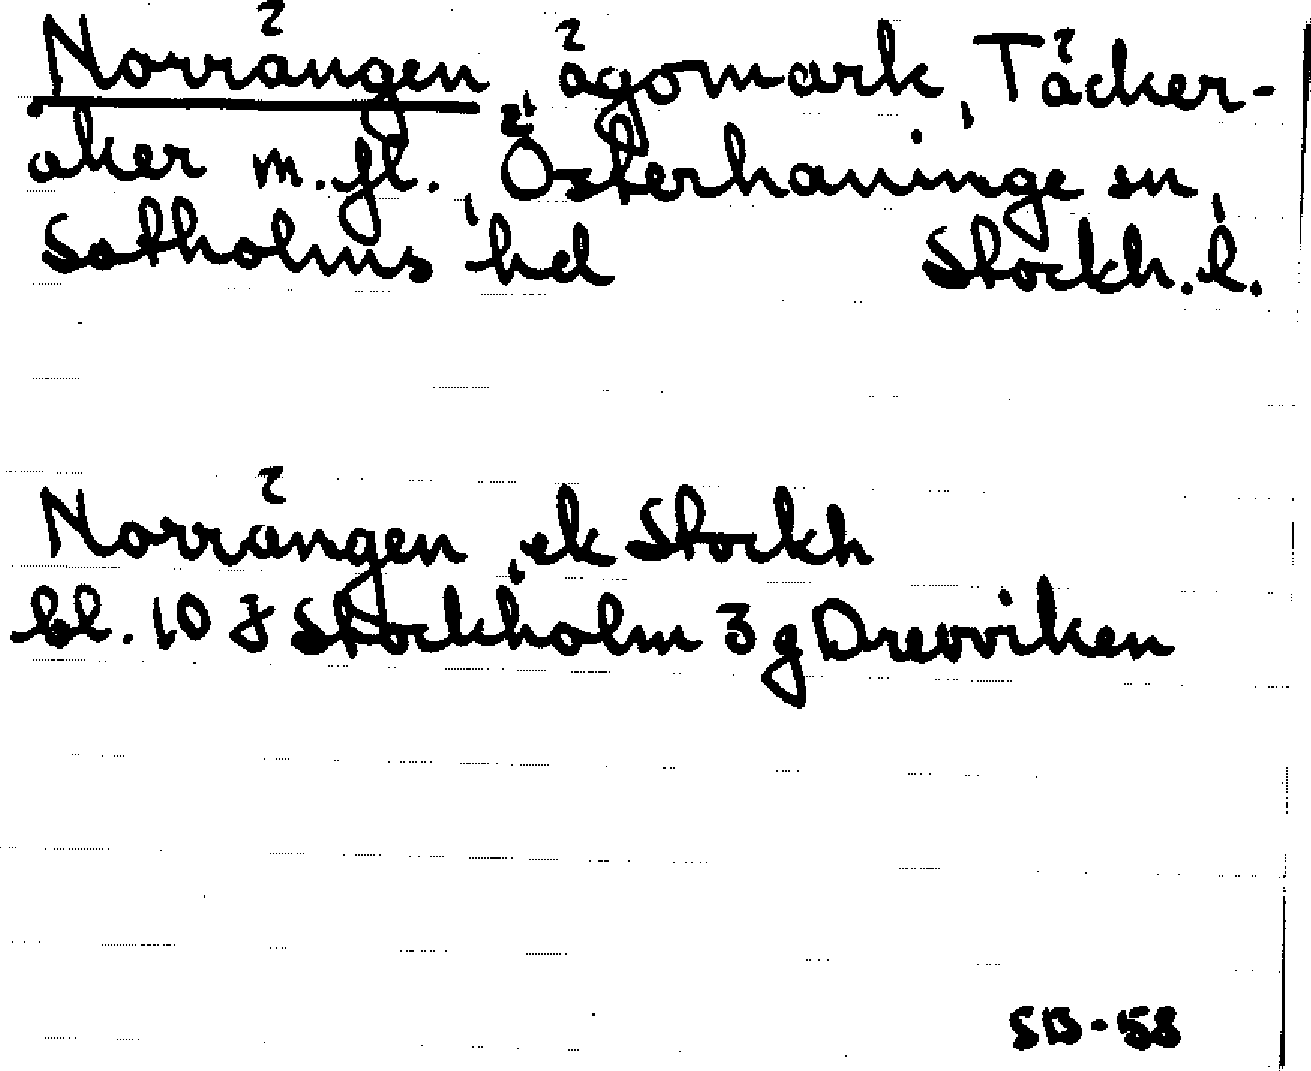 Norrängen, ägomark, Täcker-
åker m.fl., Österhaninge sn,
Sotholms hd Stockh. l.
Norrängen, ek Stockh
bl. 10 J Stockholm 3 g Drevviken
SB-58